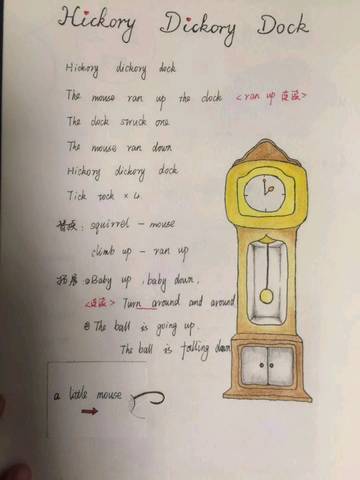 Hickory Dickory Dock
Hickory dickory dock
The mouse ran up the clock <ran up 连读>
The clock struck one
The mouse ran down
Hickory dickory dock
Tick tock × 4
替换: squirrel - mouse
climb up - ran up
拓展: ① Baby up, baby down.
<连读> Turn around and around
② The ball is going up.
The ball is falling down
a little mouse